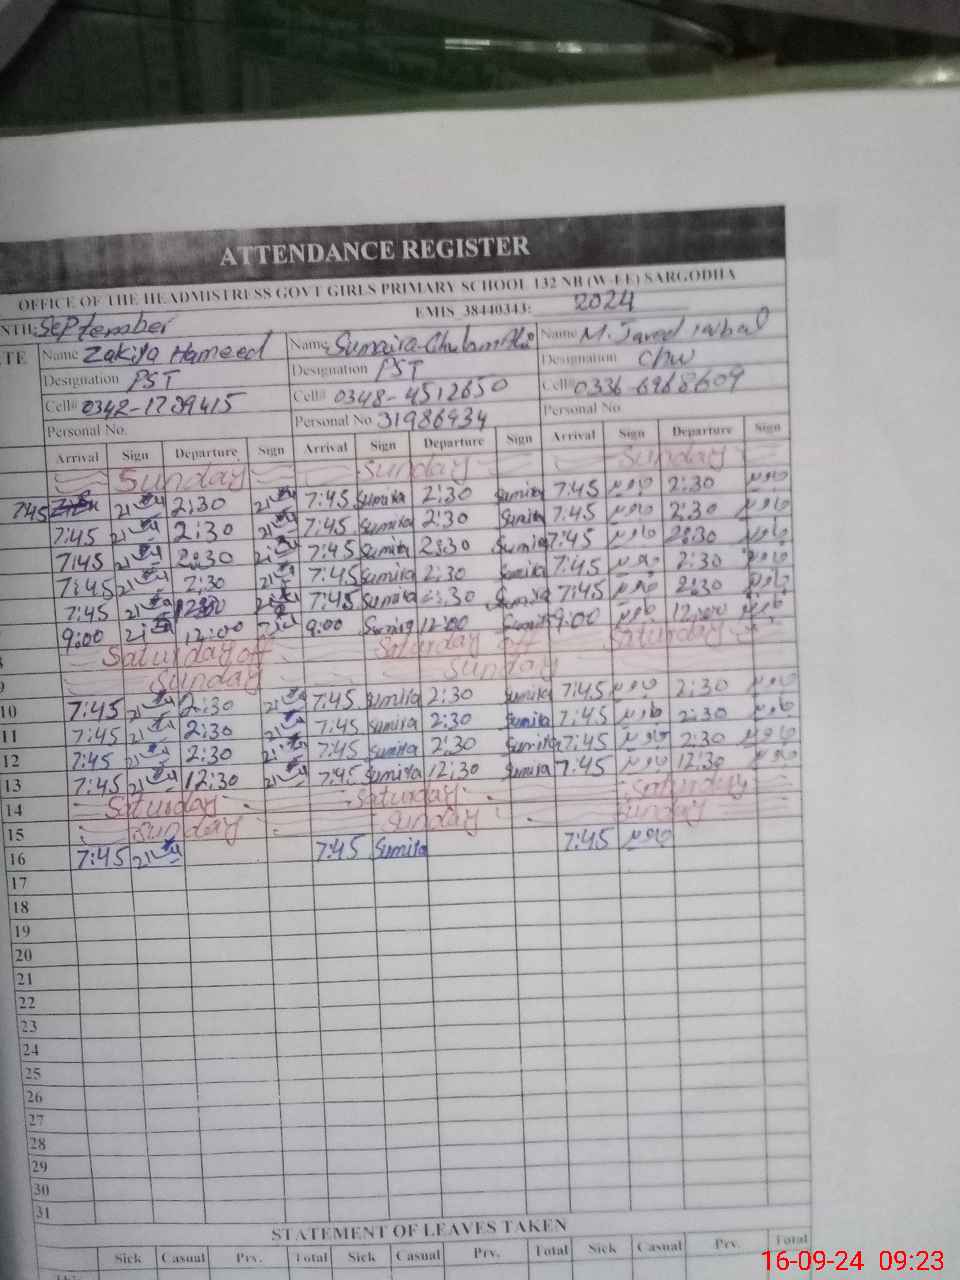 ATTENDANCE REGISTER
OFFICE OF THE HEADMISTRESS GOVT GIRLS PRIMARY SCHOOL 132 NB (W-EE) SARGODHA
NTH: September EMIS 38440343: 2024
TE Name Zakiya Hameed Name Sumaira Name M. Javed Iqbal
Designation PST Designation PST Designation
Cell# 0342-1729415 Cell# 0348-4512650 Cell# 0336-6968609
Personal No. Personal No 31986934 Personal No
Arrival Sign Departure Sign Arrival Sign Departure Sign Arrival Sign Departure Sign
Sunday Sunday Sunday
7:45 2:30 7:45 Sumira 2:30 Sumira 7:45 جاوید 2:30 جاوید
7:45 2:30 7:45 Sumira 2:30 Sumira 7:45 جاوید 2:30 جاوید
7:45 2:30 7:45 Sumira 2:30 Sumira 7:45 جاوید 2:30 جاوید
7:45 2:30 7:45 Sumira 2:30 Sumira 7:45 جاوید 2:30 جاوید
7:45 7:45 Sumira Sumira 7:45 جاوید 2:30 جاوید
9:00 12:00 9:00 Sumira 12:00 Sumira 9:00 جاوید 12:00 جاوید
Saturday off Saturday off Saturday
9 Sunday Sunday
10 7:45 2:30 7:45 Sumira 2:30 Sumira 7:45 جاوید 2:30 جاوید
11 7:45 2:30 7:45 Sumira 2:30 Sumira 7:45 جاوید 2:30 جاوید
12 7:45 2:30 7:45 Sumira 2:30 Sumira 7:45 جاوید 2:30 جاوید
13 7:45 12:30 7:45 Sumira 12:30 Sumira 7:45 جاوید 12:30 جاوید
14 Saturday Saturday Saturday
15 Sunday Sunday Sunday
16 7:45 7:45 Sumira 7:45 جاوید
17
18
19
20
21
22
23
24
25
26
27
28
29
30
31
STATEMENT OF LEAVES TAKEN
Sick Casual Prv. Total Sick Casual Prv. Total Sick Casual Prv. Total
16-09-24 09:23